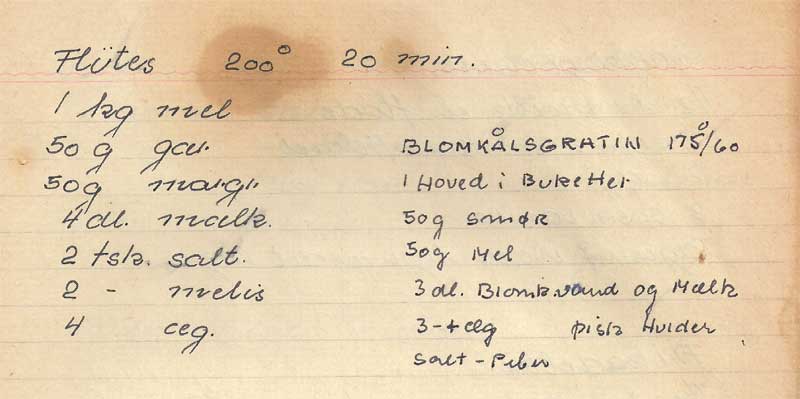 Flütes 200° 20 min.
1 kg mel
50 g gær.
50g marg.
4 dl. mælk.
2 tsk. salt.
2 - melis
4 æg.
BLOMKÅLSGRATIN 175°/60
1 Hoved i Buketter
50g smør
50g Mel
3 dl. Blomk.vand og Mælk
3-4 æg pisk Hvider
Salt-Peber